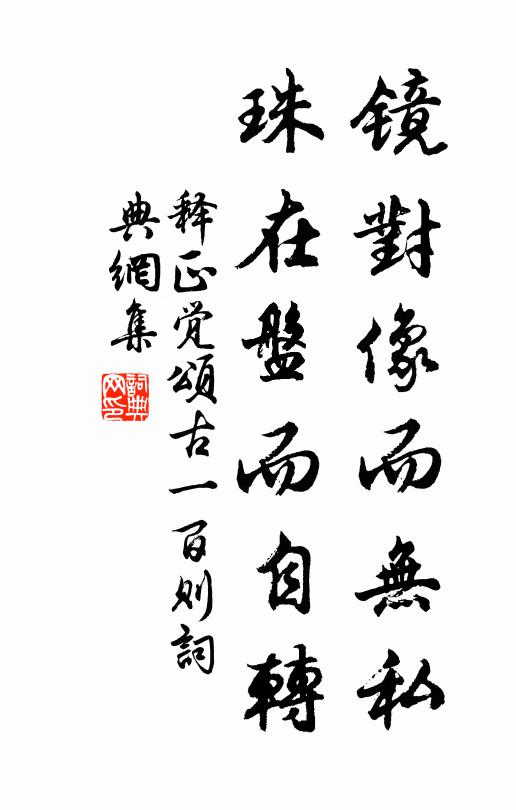 鏡對像而無私
珠在盤而自轉
释正觉頌古一百則詞
典網集
詞典网印